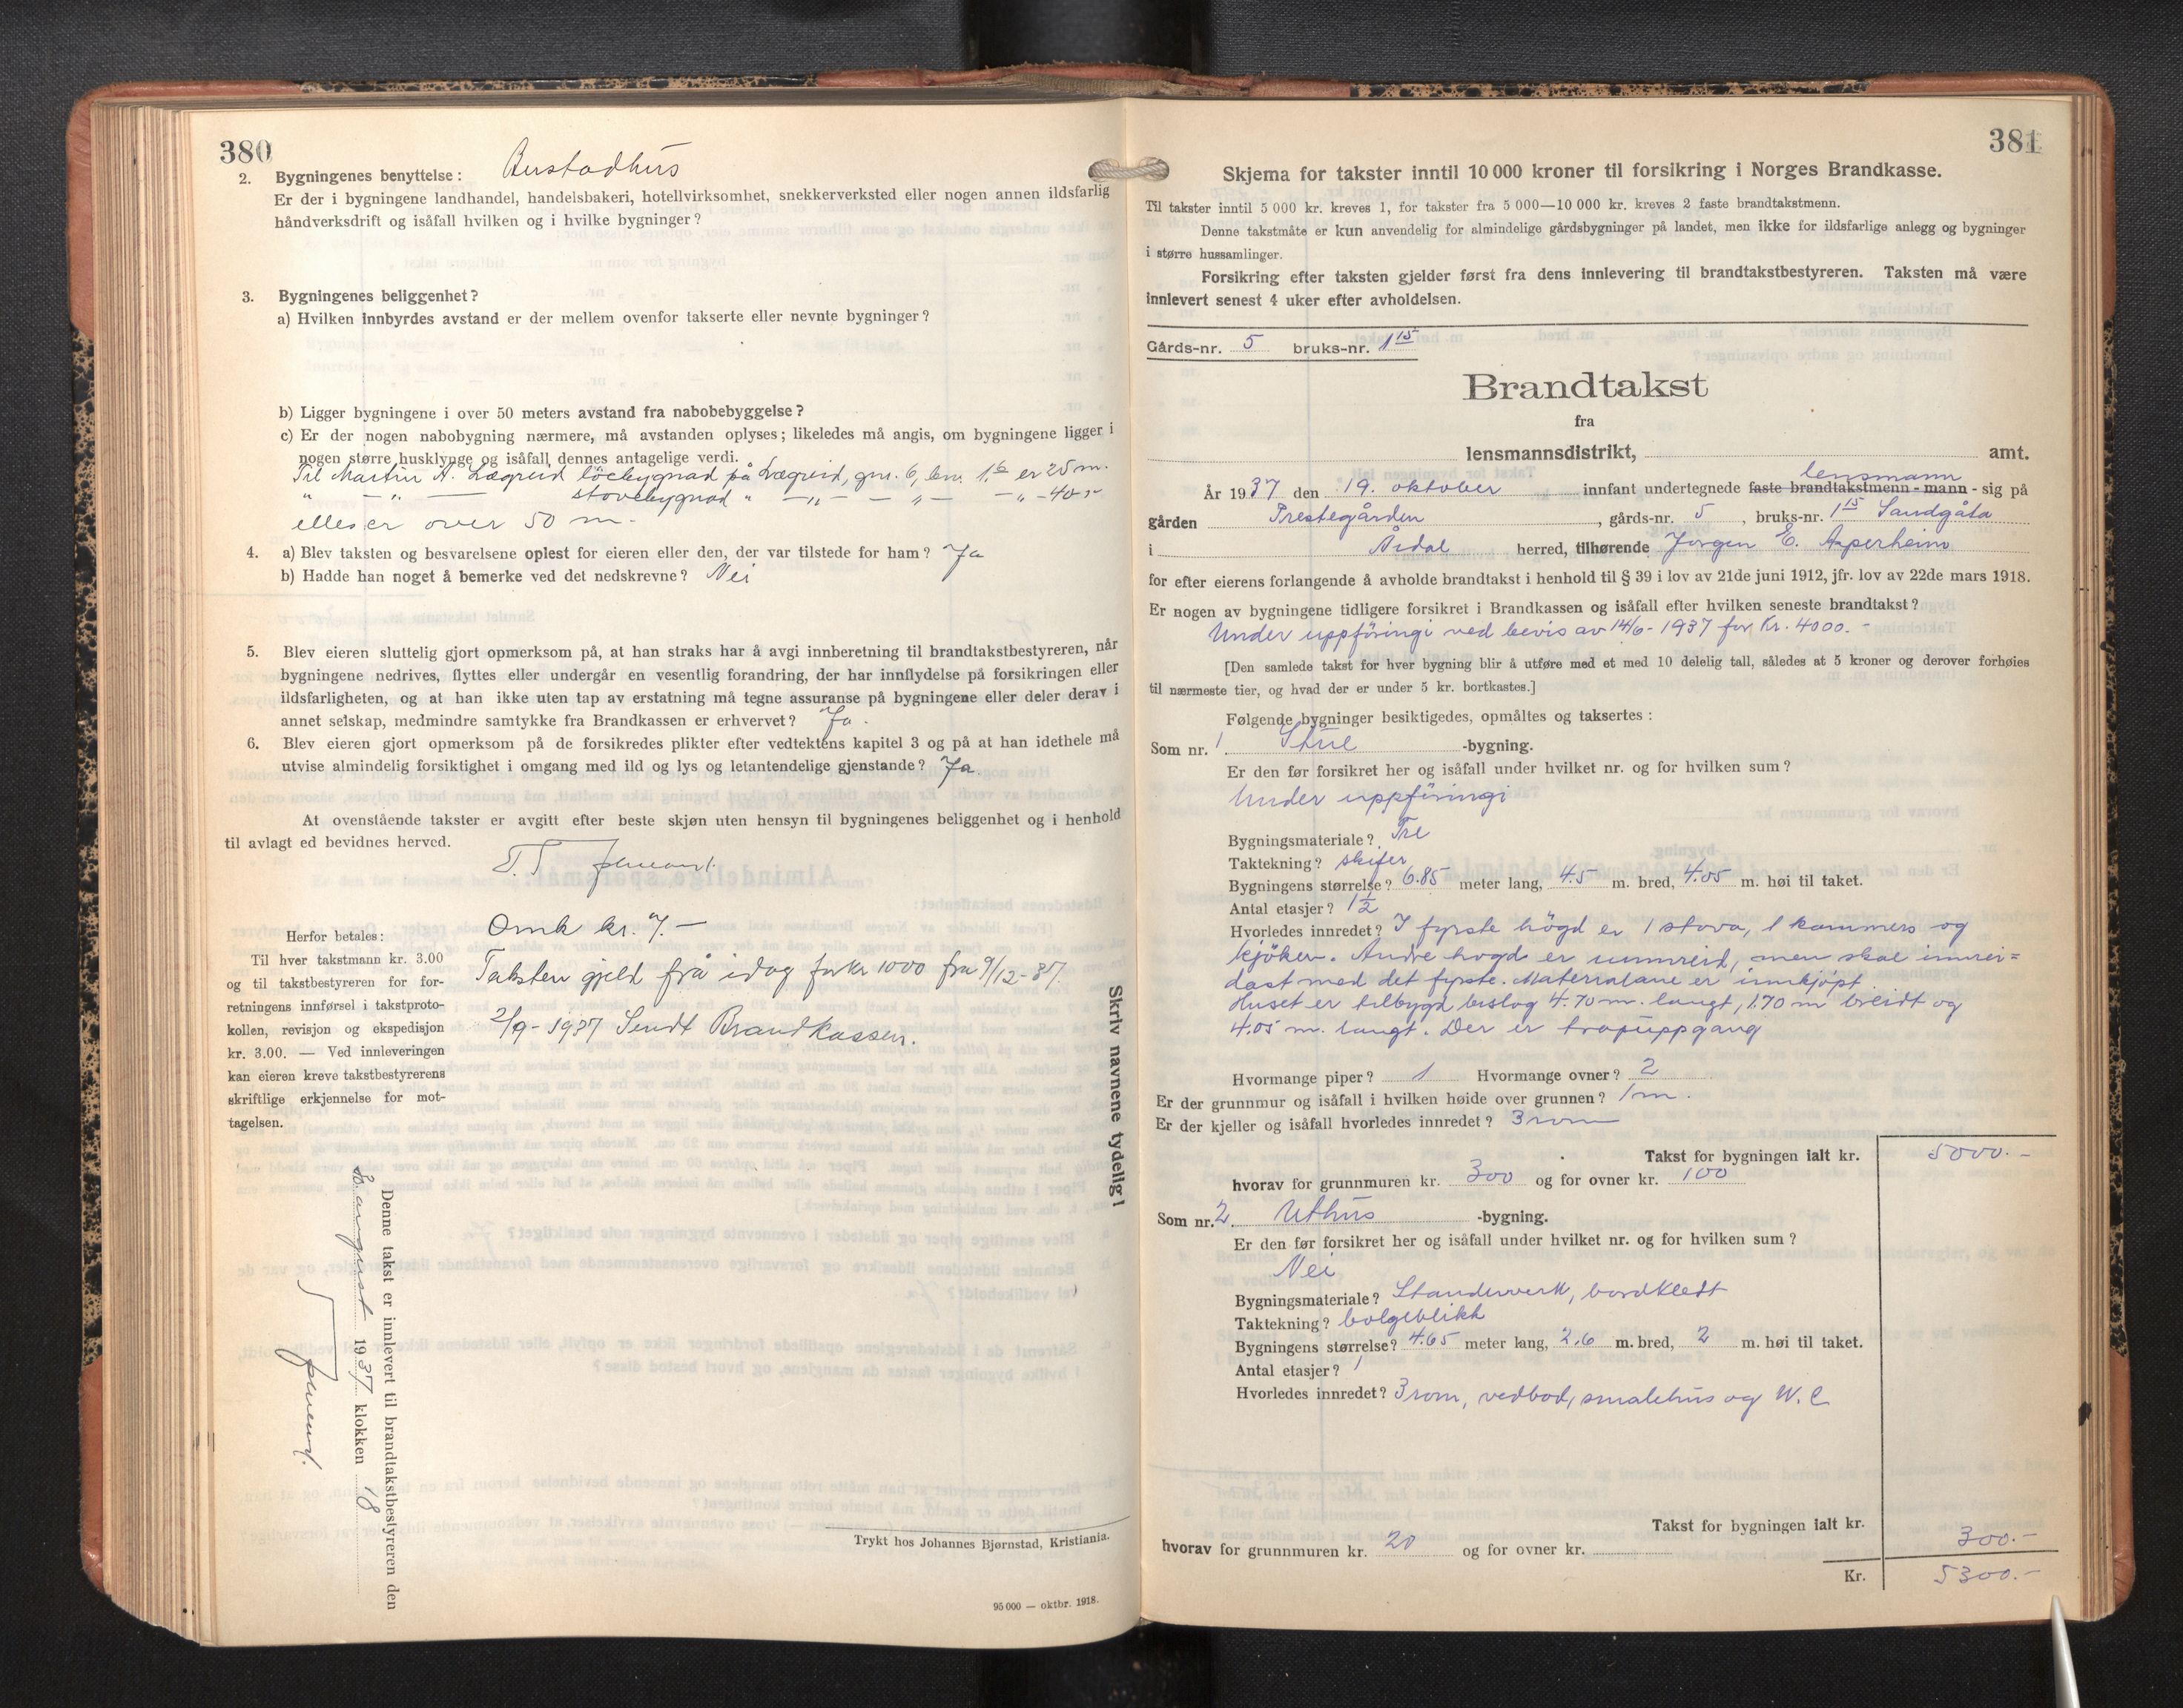 380
2. Bygningenes benyttelse: Bustadhus
Er der i bygningene landhandel, handelsbakeri, hotellvirksomhet, snekkerverksted eller nogen annen ildsfarlig
håndverksdrift og isåfall hvilken og i hvilke bygninger?
3. Bygningenes beliggenhet?
a) Hvilken innbyrdes avstand er der mellem ovenfor takserte eller nevnte bygninger?
b) Ligger bygningene i over 50 meters avstand fra nabobebyggelse?
c) Er der nogen nabobygning nærmere, må avstanden oplyses; likeledes må angis, om bygningene ligger i
nogen større husklynge og isåfall dennes antagelige verdi.
Til Martin A. Lægreid löebygnad på Lægreid, gnr. 6, bnr. 1,6 er 25 m.
" — " — stovebygnad " — " — — " — — " - 40 "
elles er over 50 m.
4. a) Blev taksten og besvarelsene oplest for eieren eller den, der var tilstede for ham? Ja
b) Hadde han noget å bemerke ved det nedskrevne? Nei
5. Blev eieren sluttelig gjort opmerksom på, at han straks har å avgi innberetning til brandtakstbestyreren, når
bygningene nedrives, flyttes eller undergår en vesentlig forandring, der har innflydelse på forsikringen eller
ildsfarligheten, og at han ikke uten tap av erstatning må tegne assuranse på bygningene eller deler derav i
annet selskap, medmindre samtykke fra Brandkassen er erhvervet? Ja.
6. Blev eieren gjort opmerksom på de forsikredes plikter efter vedtektens kapitel 3 og på at han idethele må
utvise almindelig forsiktighet i omgang med ild og lys og letantendelige gjenstande? Ja.
At ovenstående takster er avgitt efter beste skjøn uten hensyn til bygningenes beliggenhet og i henhold
til avlagt ed bevidnes herved.
Omk kr. 7.—
Taksten gjeld frå idag for kr 1000 fra 9/12-37.
2/9-1937 Sendt Brandkassen.
Herfor betales:
Til hver takstmann kr. 3.00
og til takstbestyreren for for-
retningens innførsel i takstproto-
kollen, revisjon og ekspedisjon
kr. 3.00. — Ved innleveringen
kan eieren kreve takstbestyrerens
skriftlige erkjennelse for mot-
tagelsen.
Skriv navnene tydelig!
Denne takst er innlevert til brandtakstbestyreren den
8 august 1937 klokken 18
Trykt hos Johannes Bjørnstad, Kristiania.
95 000 — oktbr. 1918.
381
Skjema for takster inntil 10 000 kroner til forsikring i Norges Brandkasse.
Til takster inntil 5 000 kr. kreves 1, for takster fra 5 000—10 000 kr. kreves 2 faste brandtakstmenn.
Denne takstmåte er kun anvendelig for almindelige gårdsbygninger på landet, men ikke for ildsfarlige anlegg og bygninger
i større hussamlinger.
Forsikring efter taksten gjelder først fra dens innlevering til brandtakstbestyreren. Taksten må være
innlevert senest 4 uker efter avholdelsen.
Gårds-nr. 5 bruks-nr. 1 15
Brandtakst
fra
lensmannsdistrikt, amt.
lensmann
År 1937 den 19. oktober innfant undertegnede faste brandtakstmenn - mann - sig på
gården Prestegården, gårds-nr. 5, bruks-nr. 1 15 Sandgata
i Årdal herred, tilhørende Jørgen E. Asperheim
for efter eierens forlangende å avholde brandtakst i henhold til § 39 i lov av 21de juni 1912, jfr. lov av 22de mars 1918.
Er nogen av bygningene tidligere forsikret i Brandkassen og isåfall efter hvilken seneste brandtakst?
Under uppföringi ved bevis av 14/6-1937 for kr. 4000.-
[Den samlede takst for hver bygning blir å utføre med et med 10 delelig tall, således at 5 kroner og derover forhøies
til nærmeste tier, og hvad der er under 5 kr. bortkastes.]
Følgende bygninger besiktigedes, opmåltes og taksertes:
Som nr. 1. Stue -bygning.
Er den før forsikret her og isåfall under hvilket nr. og for hvilken sum?
Under uppföringi
Bygningsmateriale? Tre
Taktekning? skifer
Bygningens størrelse? 6.85 meter lang, 4.5 m. bred, 4.05 m. høi til taket.
Antal etasjer? 1 1/2
Hvorledes innredet? I fyrste högd er 1 stova, 1 kammers og
kjöken. Andre högd er uinnreid, men skal innrei=
dast med det fyrste. Materialane er innkjöpt.
Huset er tilbygd beslag 4.70 m. langt, 1.70 m breidt og
4.05 m. langt. Der er trapuppgang
Hvormange piper? 1 Hvormange ovner? 2
Er der grunnmur og isåfall i hvilken høide over grunnen? 1 m.
Er der kjeller og isåfall hvorledes innredet? 3 rom
Takst for bygningen ialt kr. 5000.-
hvorav for grunnmuren kr. 300 og for ovner kr. 100
Som nr. 2. Uthus -bygning.
Er den før forsikret her og isåfall under hvilket nr. og for hvilken sum?
Nei
Bygningsmateriale? Standerverk, bordkledt
Taktekning? bølgeblikk
Bygningens størrelse? 4.65 meter lang, 2.6 m. bred, 2 m. høi til taket.
Antal etasjer? 1
Hvorledes innredet? 3 rom, vedbod, smalehus og W.C
Takst for bygningen ialt kr. 300.-
hvorav for grunnmuren kr. 20 og for ovner kr.
Kr. 5300.-